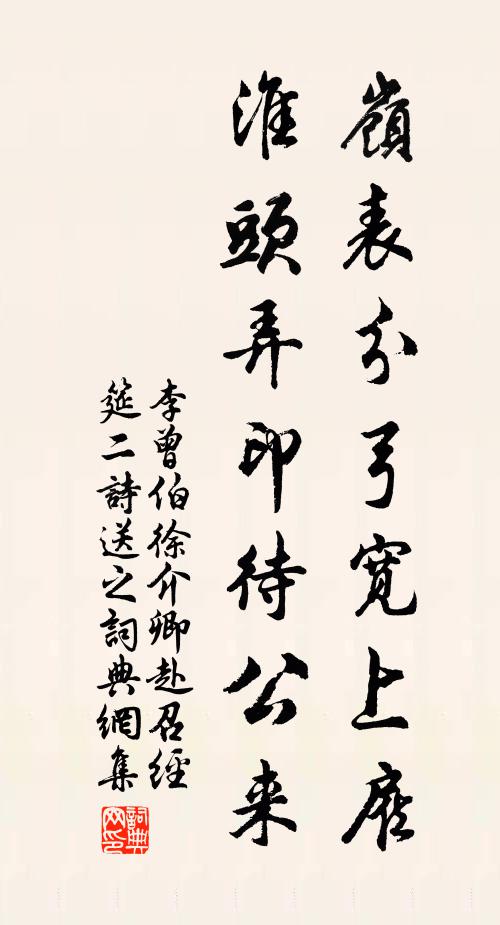 嶺表分弓寬上
淮頭弄印待公来
李曾伯徐介卿赴召經
筵二詩送之詞典網集
詞典
网印